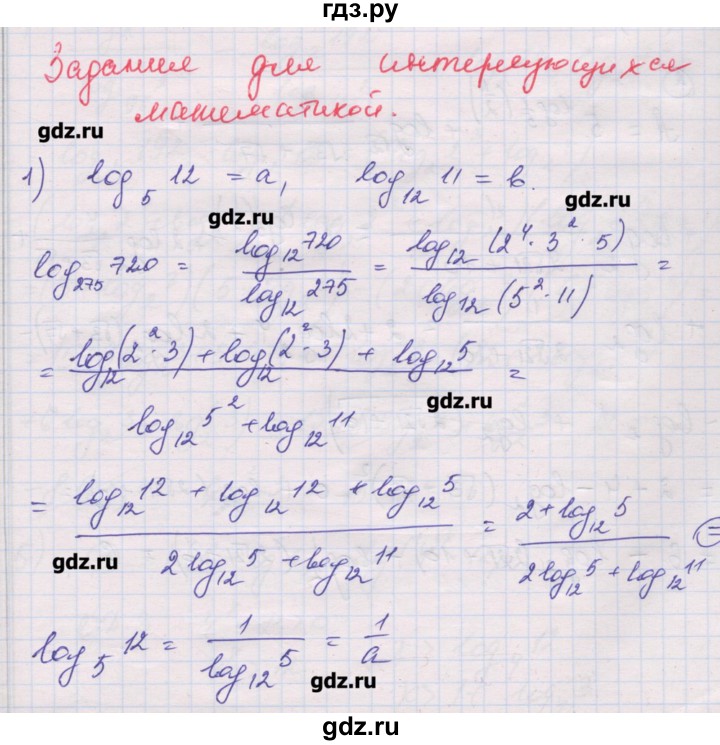 гдз.ру
Задания для интересующихся
математикой.
gdz.ru
1) log₅ 12 = a, log₁₂ 11 = b.
gdz.ru
gdz.ru
log₂₇₅ 720 = log₁₂ 720 / log₁₂ 275 = log₁₂ (2⁴ · 3² · 5) / log₁₂ (5² · 11) =
= (log₁₂ (2² · 3) + log₁₂ (2² · 3) + log₁₂ 5) / (log₁₂ 5² + log₁₂ 11) =
gdz.ru
= (log₁₂ 12 + log₁₂ 12 + log₁₂ 5) / (2 log₁₂ 5 + log₁₂ 11) = (2 + log₁₂ 5) / (2 log₁₂ 5 + log₁₂ 11) =
gdz.ru
log₅ 12 = 1 / log₁₂ 5 = 1 / a
gdz.ru
gdz.ru